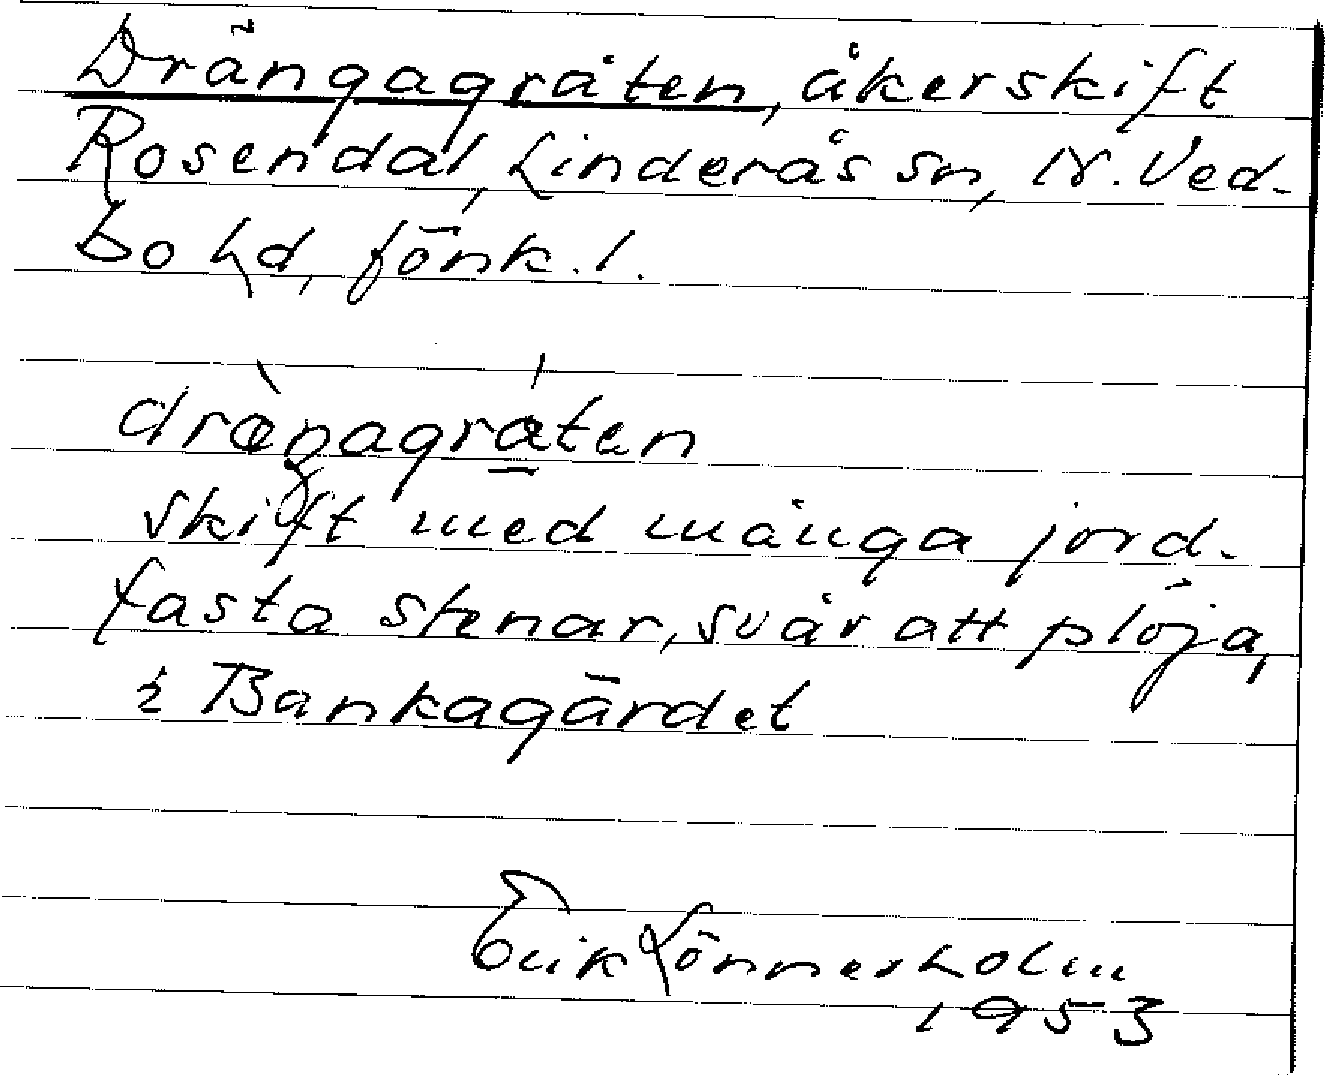 Drängagråten, åkerskift
Rosendal, Linderås sn, N. Ved-
bo hd, Jönk. l.
dræ̀ŋagráten
skift med många jord-
fasta stenar, svår att plöja,
i Bankagärdet
Erik Lönnerholm
1953